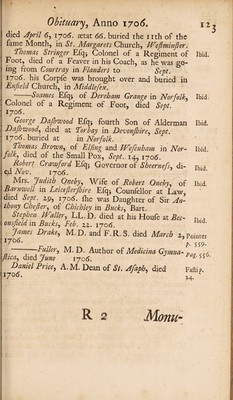 Obituary, Anno 1706. 123
died April 6, 1706. ætat 66. buried the 11th of the
same Month, in St. Margarets Church, Westminster.
Thomas Stringer Esq; Colonel of a Regiment of Ibid.
Foot, died of a Feaver in his Coach, as he was go-
ing from Courtray in Flanders to Sept.
1706. his Corpse was brought over and buried in
Enfield Church, in Middlesex.
——Soames Esq; of Dereham Grange in Norfolk, Ibid.
Colonel of a Regiment of Foot, died Sept.
1706.
George Dashwood Esq; fourth Son of Alderman Ibid.
Dashwood, died at Torbay in Devonshire, Sept.
1706. buried at in Norfolk.
Thomas Brown, of Elsing and Wesenham in Nor- Ibid.
folk, died of the Small Pox, Sept. 14, 1706.
Robert Crawford Esq; Governor of Sheerness, di- Ibid.
ed Nov. 1706.
Mrs. Judith Oneby, Wife of Robert Oneby, of Ibid.
Barnwell in Leicestershire Esq; Counsellor at Law,
died Sept. 29, 1706. she was Daughter of Sir An-
thony Chester, of Chichley in Bucks, Bart.
Stephen Waller, LL. D. died at his House at Bec- Ibid.
onsfield in Bucks, Feb. 22. 1706.
James Drake, M. D. and F. R. S. died March 2, Pointer
1706. p. 559.
——Fuller, M. D. Author of Medicina Gymna- Pag. 556.
stica, died June 1706.
Daniel Price, A. M. Dean of St. Asaph, died Fasti p.
1706. 24.
R 2 Monu-